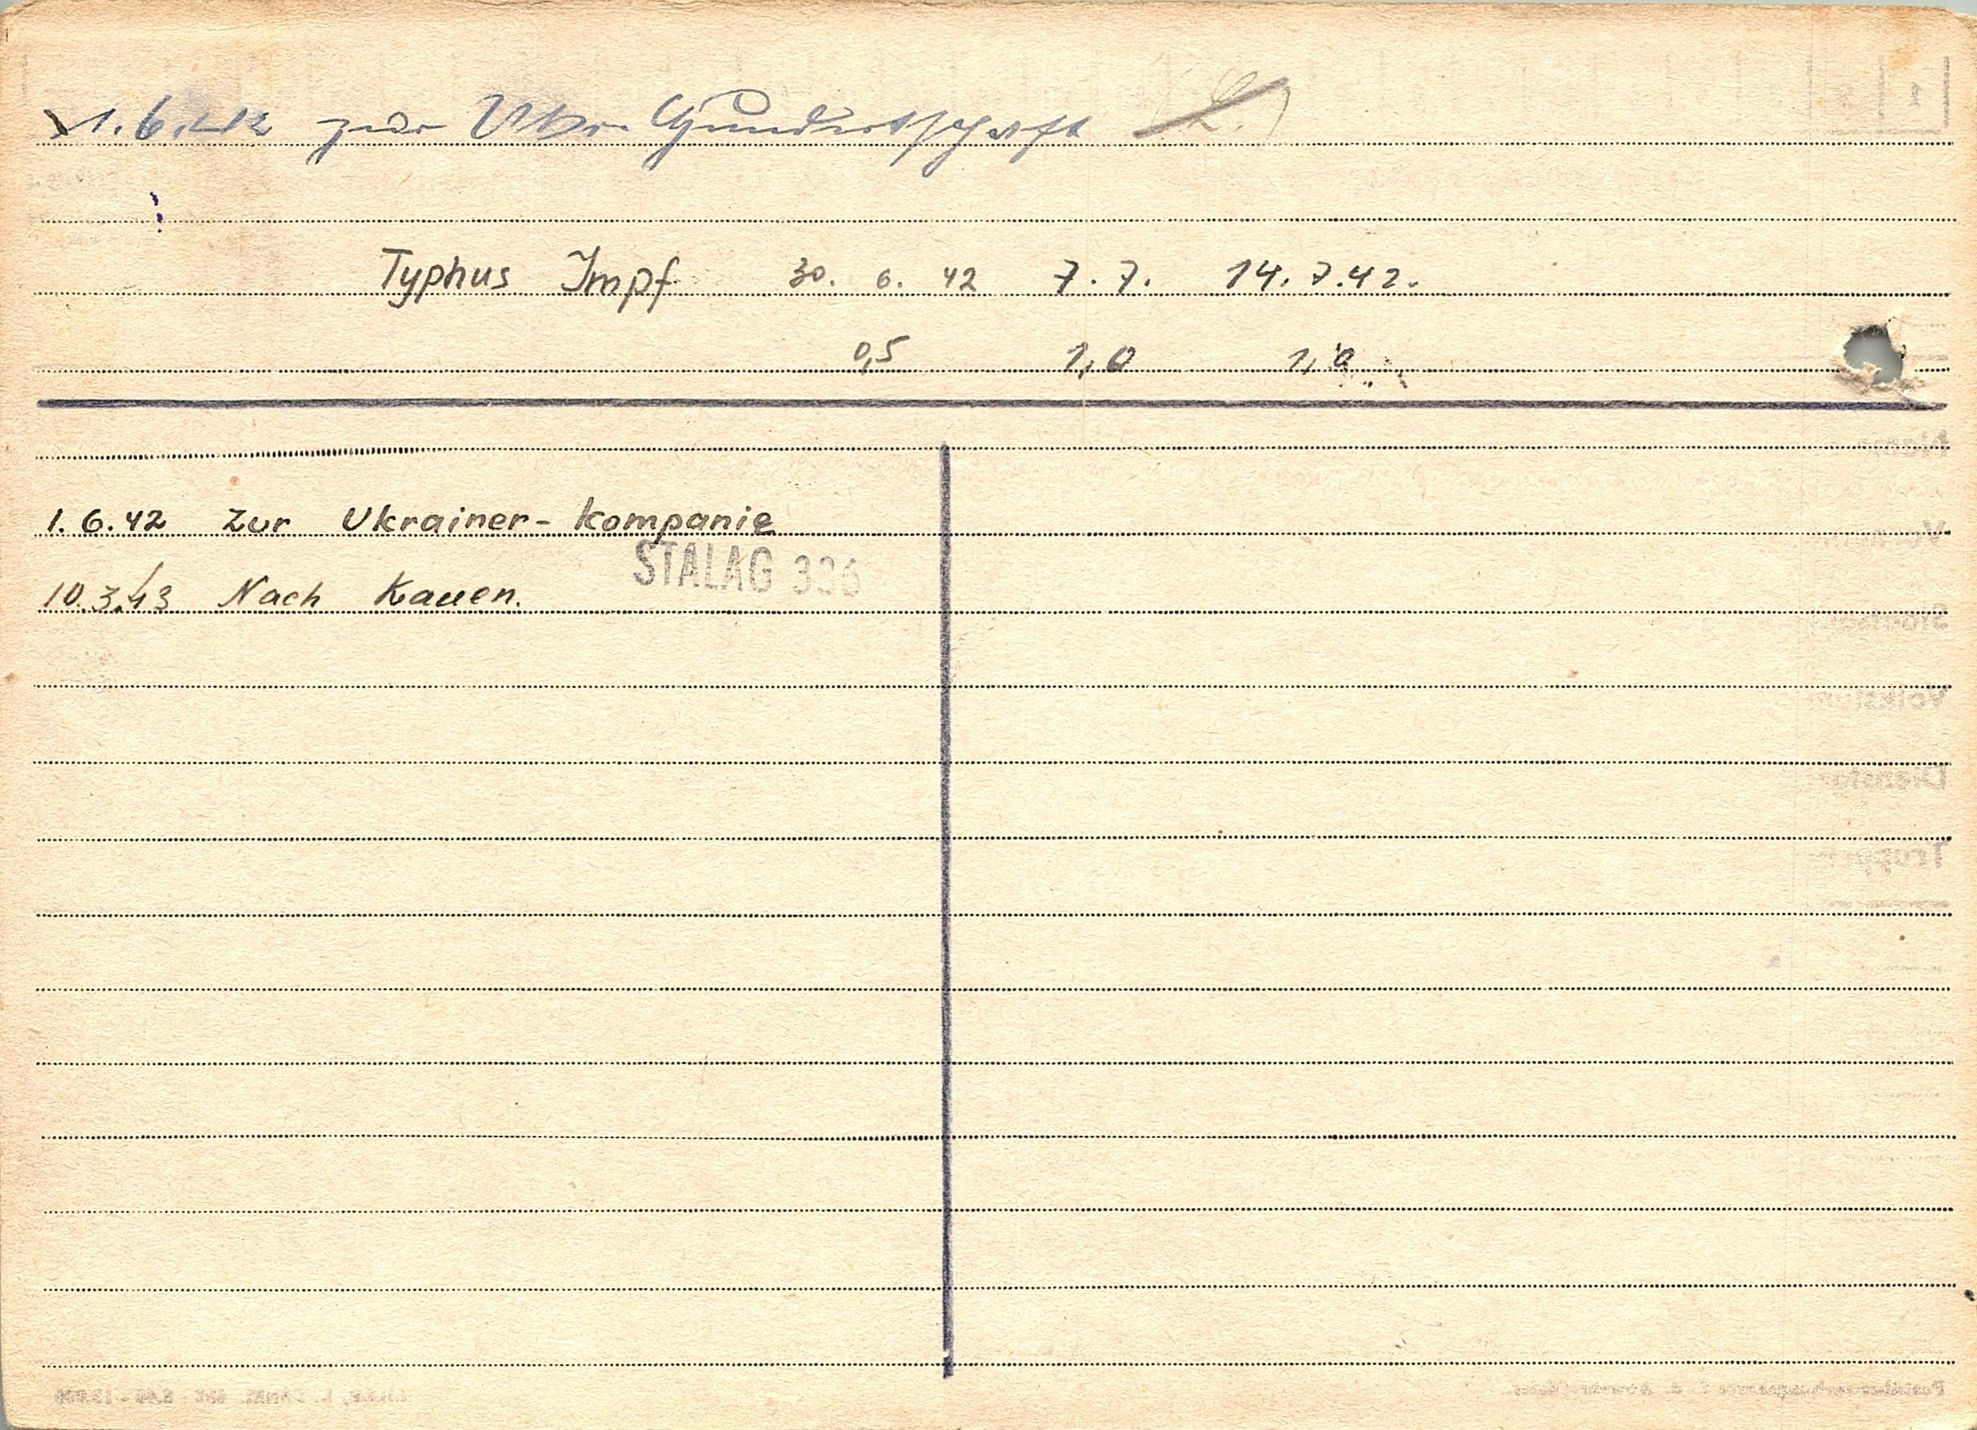 1.6.42 zur Ukr. Hundertschaft
Typhus Impf 30. 6. 42 7.7. 14.7.42.
0,5 1,0 1,0
1.6.42 Zur Ukrainer-Kompanie
STALAG 336
10.3.43 Nach Kauen.